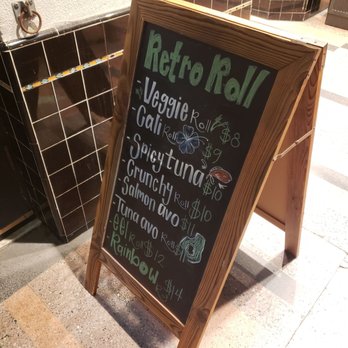 Retro Roll
- Veggie Roll $8
- Cali Roll $9
- Spicy tuna $10
- Crunchy Roll $10
- Salmon avo $11
- Tuna avo Roll
- Eel Roll $12
- Rainbow Roll $14